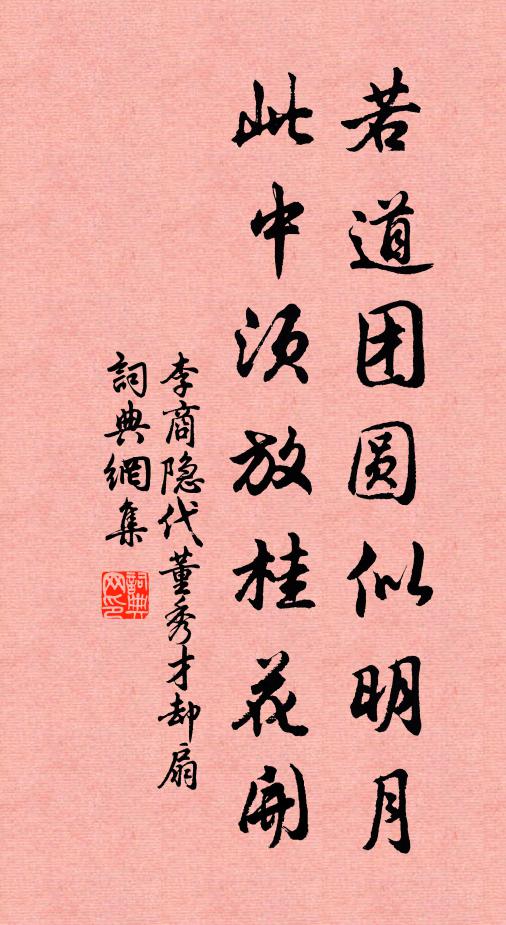 若道团圆似明月
此中须放桂花開
李商隐代董秀才却扇
詞典網集
詞典网印